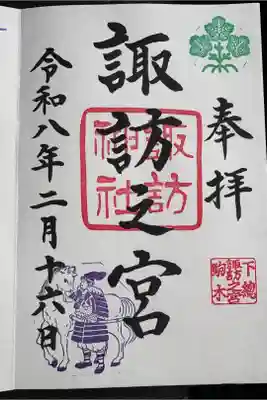 奉拝
諏訪之宮
諏訪神社
下總
諏訪之宮
駒木
令和八年二月十六日